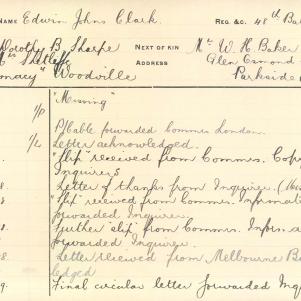 NAME Edwin Johns Clark. REG. &C. 48th Ba
Dorothy B Sharpe NEXT OF KIN Mr W. H. Baker
ADDRESS Glen Osmond
"Woodville Parkside
"Missing"
P/Cable forwarded Commrs London.
Letter acknowledged.
"Slip" received from Commrs. Copy
Inquirers
8. Letter of thanks from Inquirer.
8. "Slip" received from Commrs. Informati
forwarded Inquirer
Further "slip" from Commrs. Inform. a
forwarded Inquirer.
8. Letter received from Melbourne B
ledged
9. Final circular letter forwarded Inq